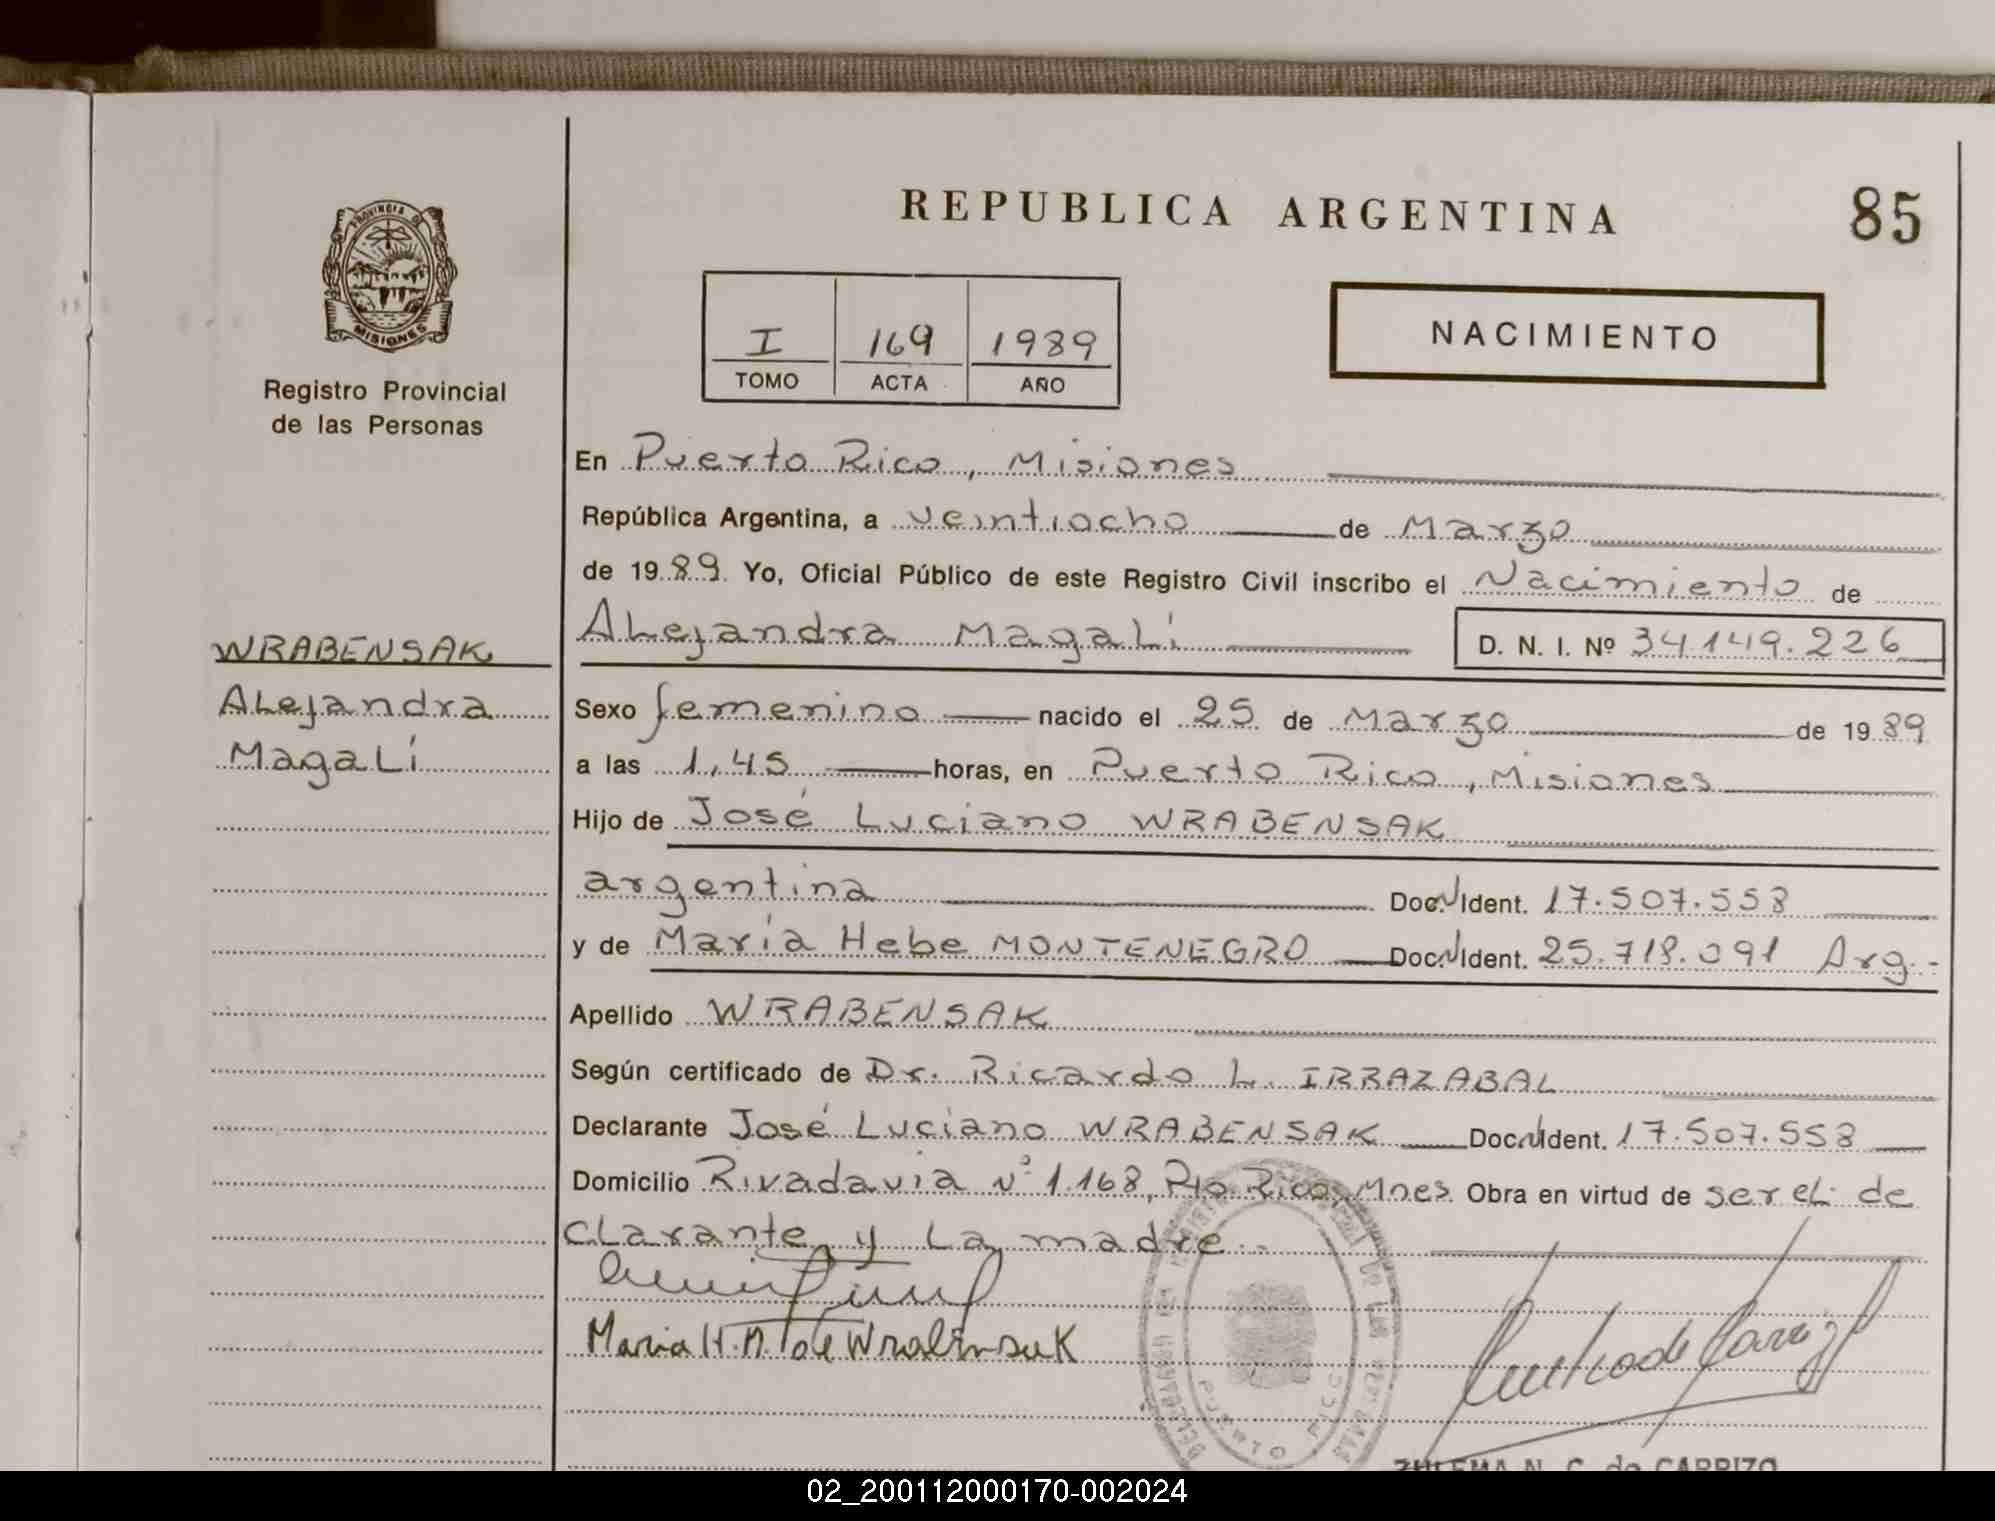 REPUBLICA ARGENTINA
85
PROVINCIA DE
MISIONES
Registro Provincial
de las Personas
I 169 1989
TOMO ACTA AÑO
NACIMIENTO
En Puerto Rico, Misiones
República Argentina, a veintiocho de Marzo
de 1989 Yo, Oficial Público de este Registro Civil inscribo el Nacimiento de
Alejandra Magalí D. N. I. Nº 34.149.226
WRABENSAK
Alejandra
Magalí
Sexo femenino nacido el 25 de Marzo de 1989
a las 1,45 horas, en Puerto Rico, Misiones
Hijo de José Luciano WRABENSAK
argentina Doc. Ident. 17.507.558
y de María Hebe MONTENEGRO Doc. Ident. 25.718.091 Arg.-
Apellido WRABENSAK
Según certificado de Dr. Ricardo L. IRRAZABAL
Declarante José Luciano WRABENSAK Doc. Ident. 17.507.558
Domicilio Rivadavia Nº 1.168, Pto Rico, Mnes. Obra en virtud de ser el de
clarante y la madre.
Maria H. M. de Wrabensak
PUERTO RICO
ZULEMA N. C. de CARRIZO
02_200112000170-002024